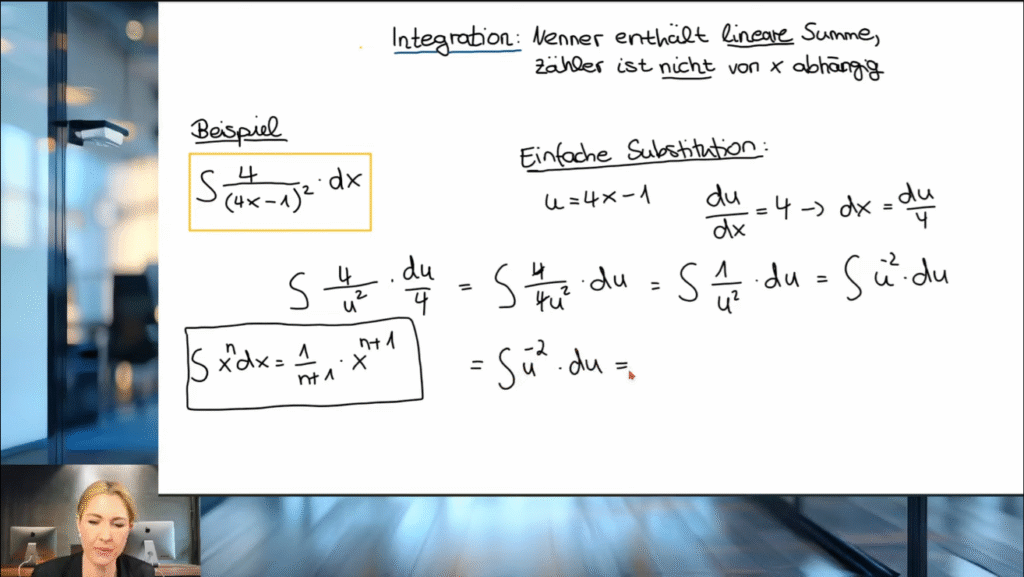 Integration: Nenner enthält lineare Summe,
zähler ist nicht von x abhängig
Beispiel
∫ 4/(4x-1)² · dx
Einfache Substitution:
u = 4x-1 du/dx = 4 → dx = du/4
∫ 4/u² · du/4 = ∫ 4/4u² · du = ∫ 1/u² · du = ∫ u⁻² · du
∫ xⁿ dx = 1/n+1 · xⁿ⁺¹
= ∫ u⁻² · du =